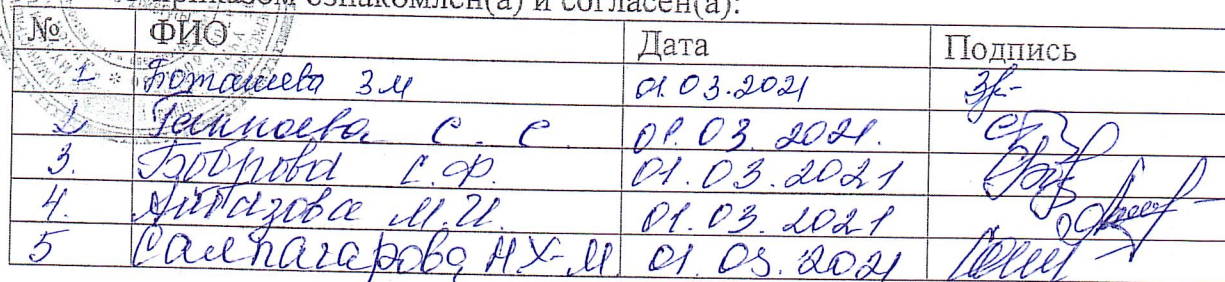 приказом ознакомлен(а) и согласен(а):
№ ФИО Дата Подпись
1 Боташева З М 01.03.2021
2 С. С. 01.03.2021.
3. Боброва С.Ф. 01.03.2021
4. Айбазова М.И. 01.03.2021
5 Салпагарова Н Х-М 01.03.2021